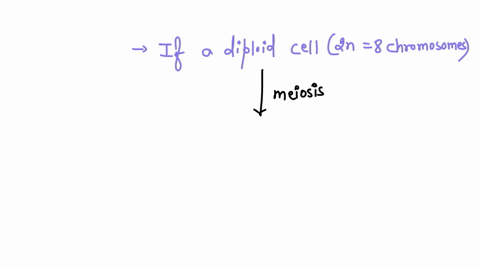 → If a diploid cell (2n = 8 chromosomes)
meiosis